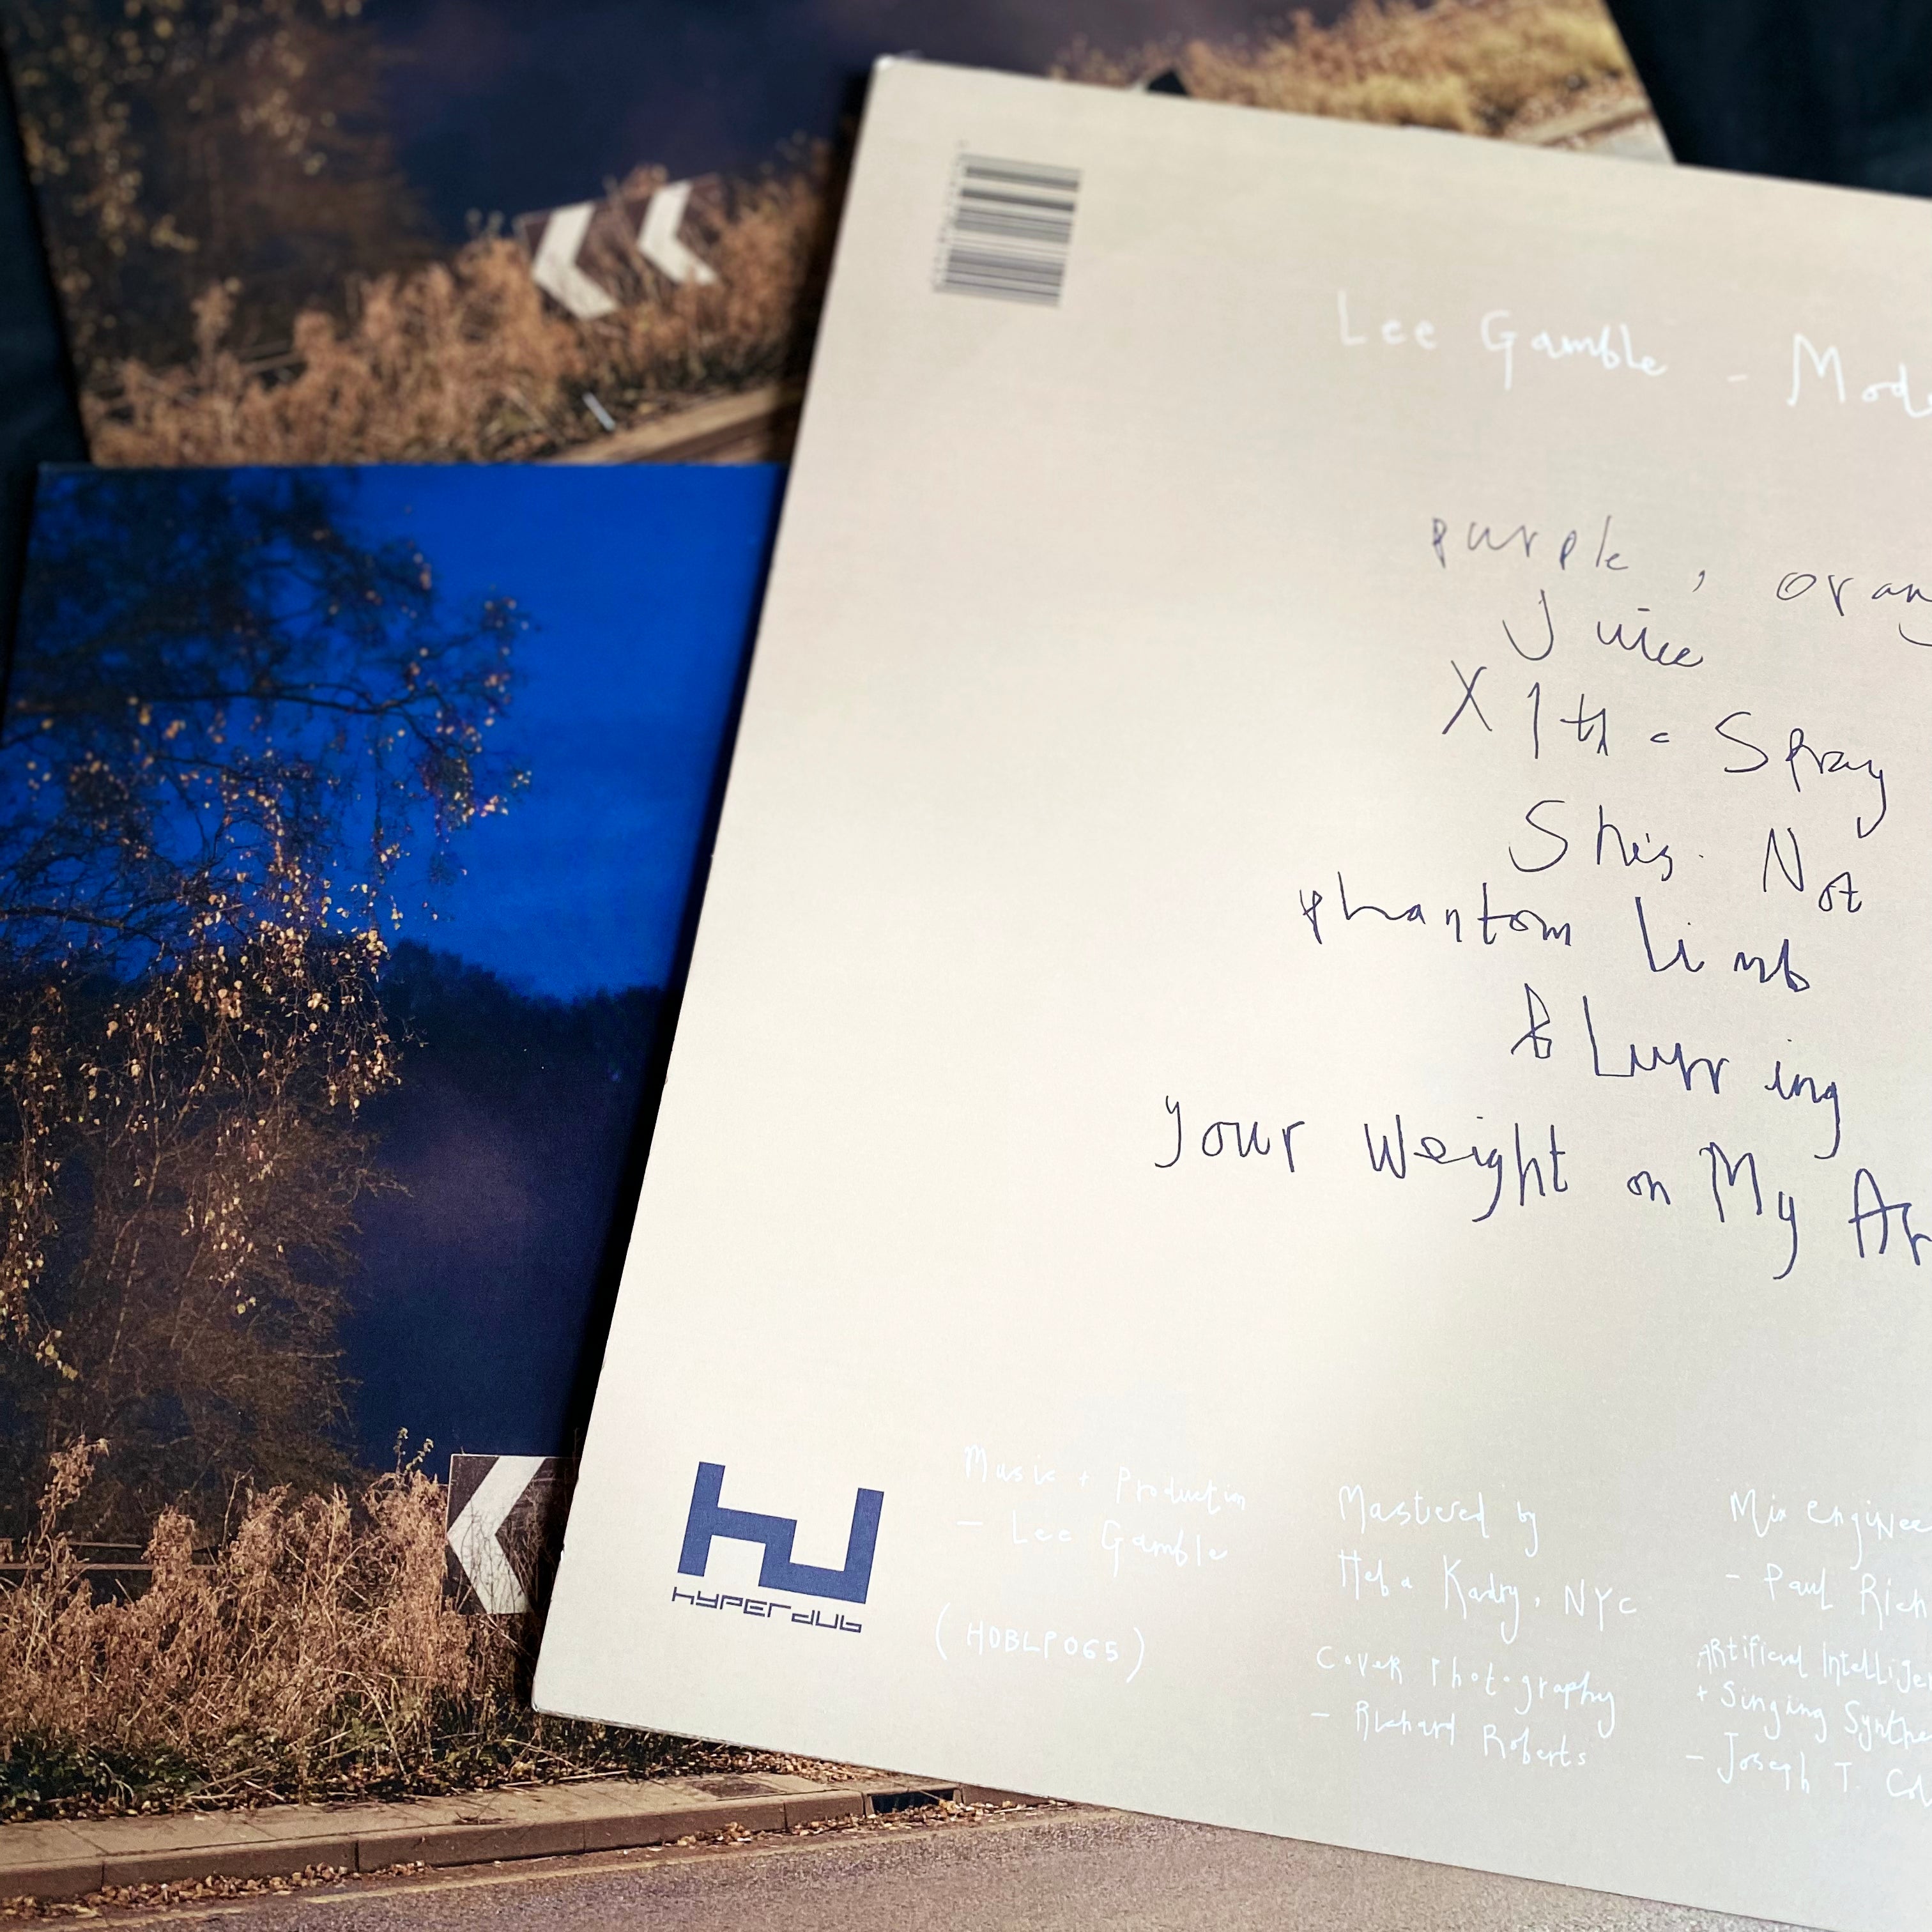 Lee Gamble - Mode
purple, orang
Juice
X1th. Spray
She's Not
phantom limb
Blurring
Your Weight on My Ar
hyperdub
Music + Production
- Lee Gamble
(HDBLP065)
Mastered by
Heba Kadry, NYC
Cover Photography
- Richard Roberts
Mix Enginee
- Paul Rich
Artificial Intelligen
+ Singing Synthe
- Joseph T. Col